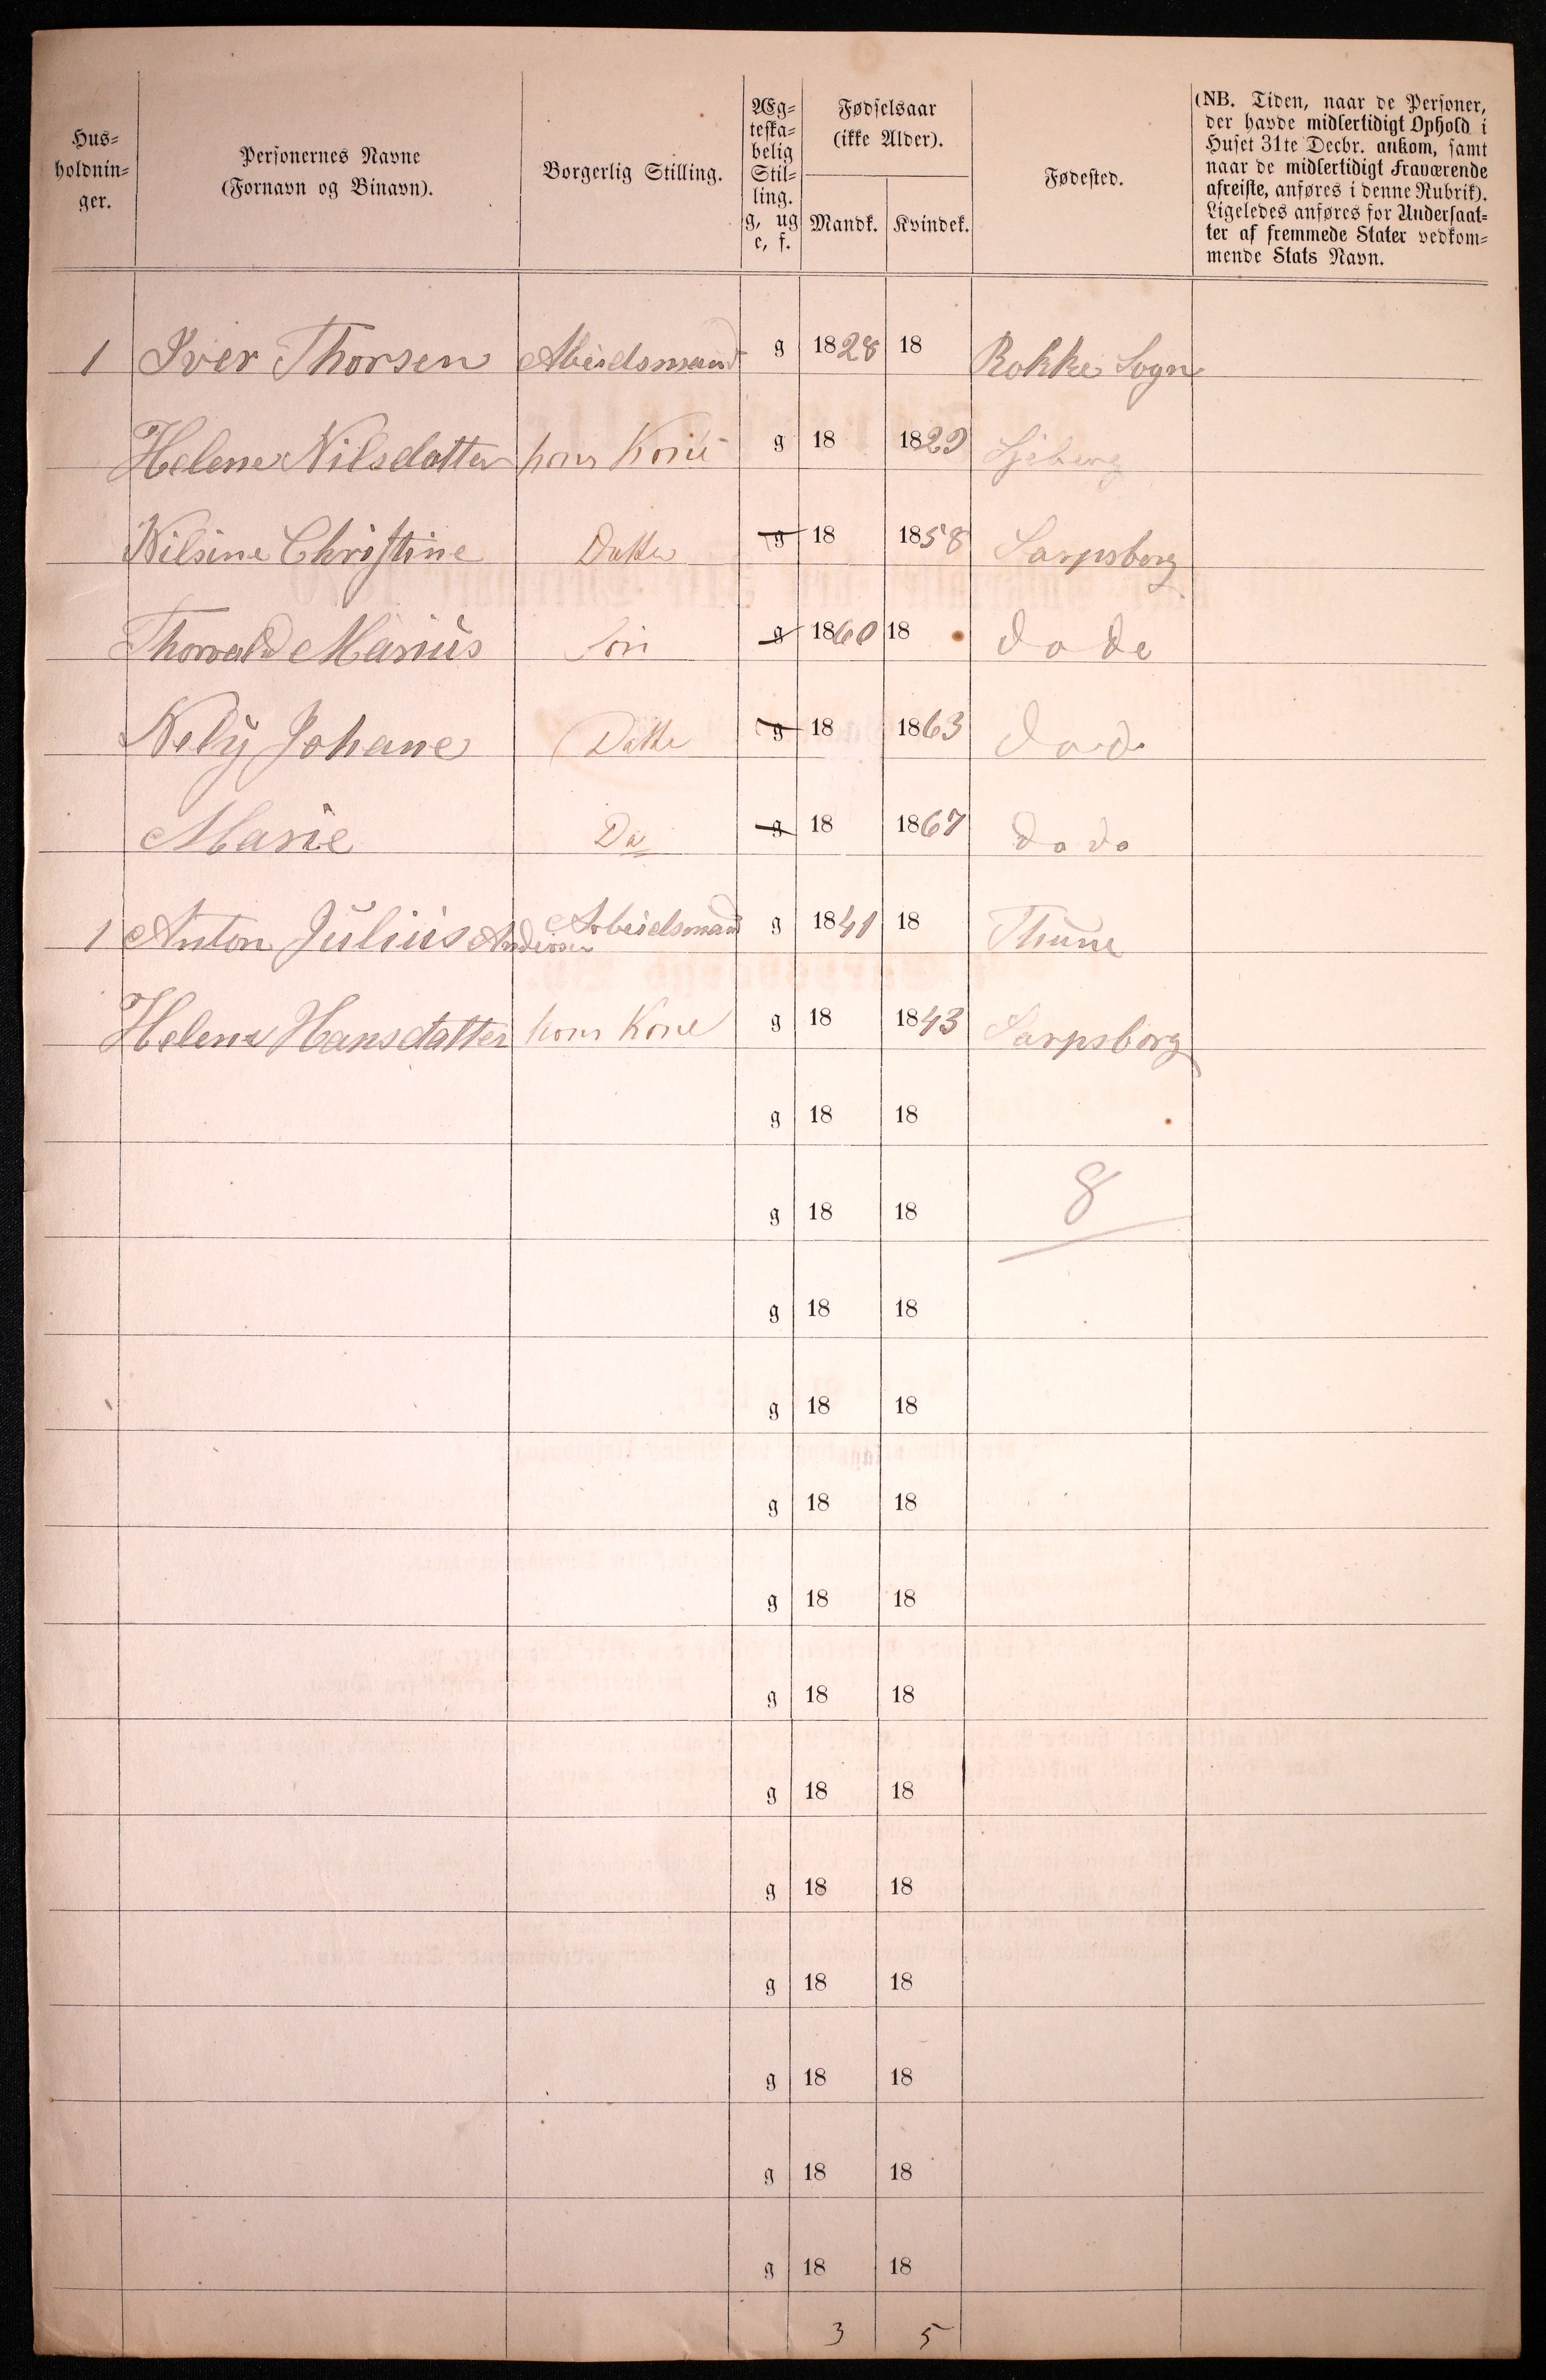 Hus-
holdnin-
ger.
Personernes Navne
(Fornavn og Binavn).
Borgerlig Stilling.
Æg-
teska-
belig
Stil-
ling.
g, ug
e, f.
Fødselsaar
(ikke Alder).
Mandk. Kvindek.
Fødested.
(NB. Tiden, naar de Personer,
der havde midlertidigt Ophold i
Huset 31te Decbr. ankom, samt
naar de midlertidigt Fraværende
afreiste, anføres i denne Rubrik).
Ligeledes anføres for Undersaat-
ter af fremmede Stater vedkom-
mende Stats Navn.
1 Iver Thorsen Abeidsmand g 1828 18 Rokke Sogn
Helene Nilsdatter hans Kone g 18 1829
Nilsine Christine Datter g 18 1858 Sarpsborg
Thorvald Marius Søn g 1860 18 do do
Nely Johane Datte g 18 1863 do do
Marie Do g 18 1867 do do
1 Anton Julius Andersen Arbeidsmand g 1841 18 Thune
Helene Hansdatter hans Kone g 18 1843 Sarpsborg
g 18 18
g 18 18 8
g 18 18
g 18 18
g 18 18
g 18 18
g 18 18
g 18 18
g 18 18
g 18 18
g 18 18
g 18 18
g 18 18
3 5